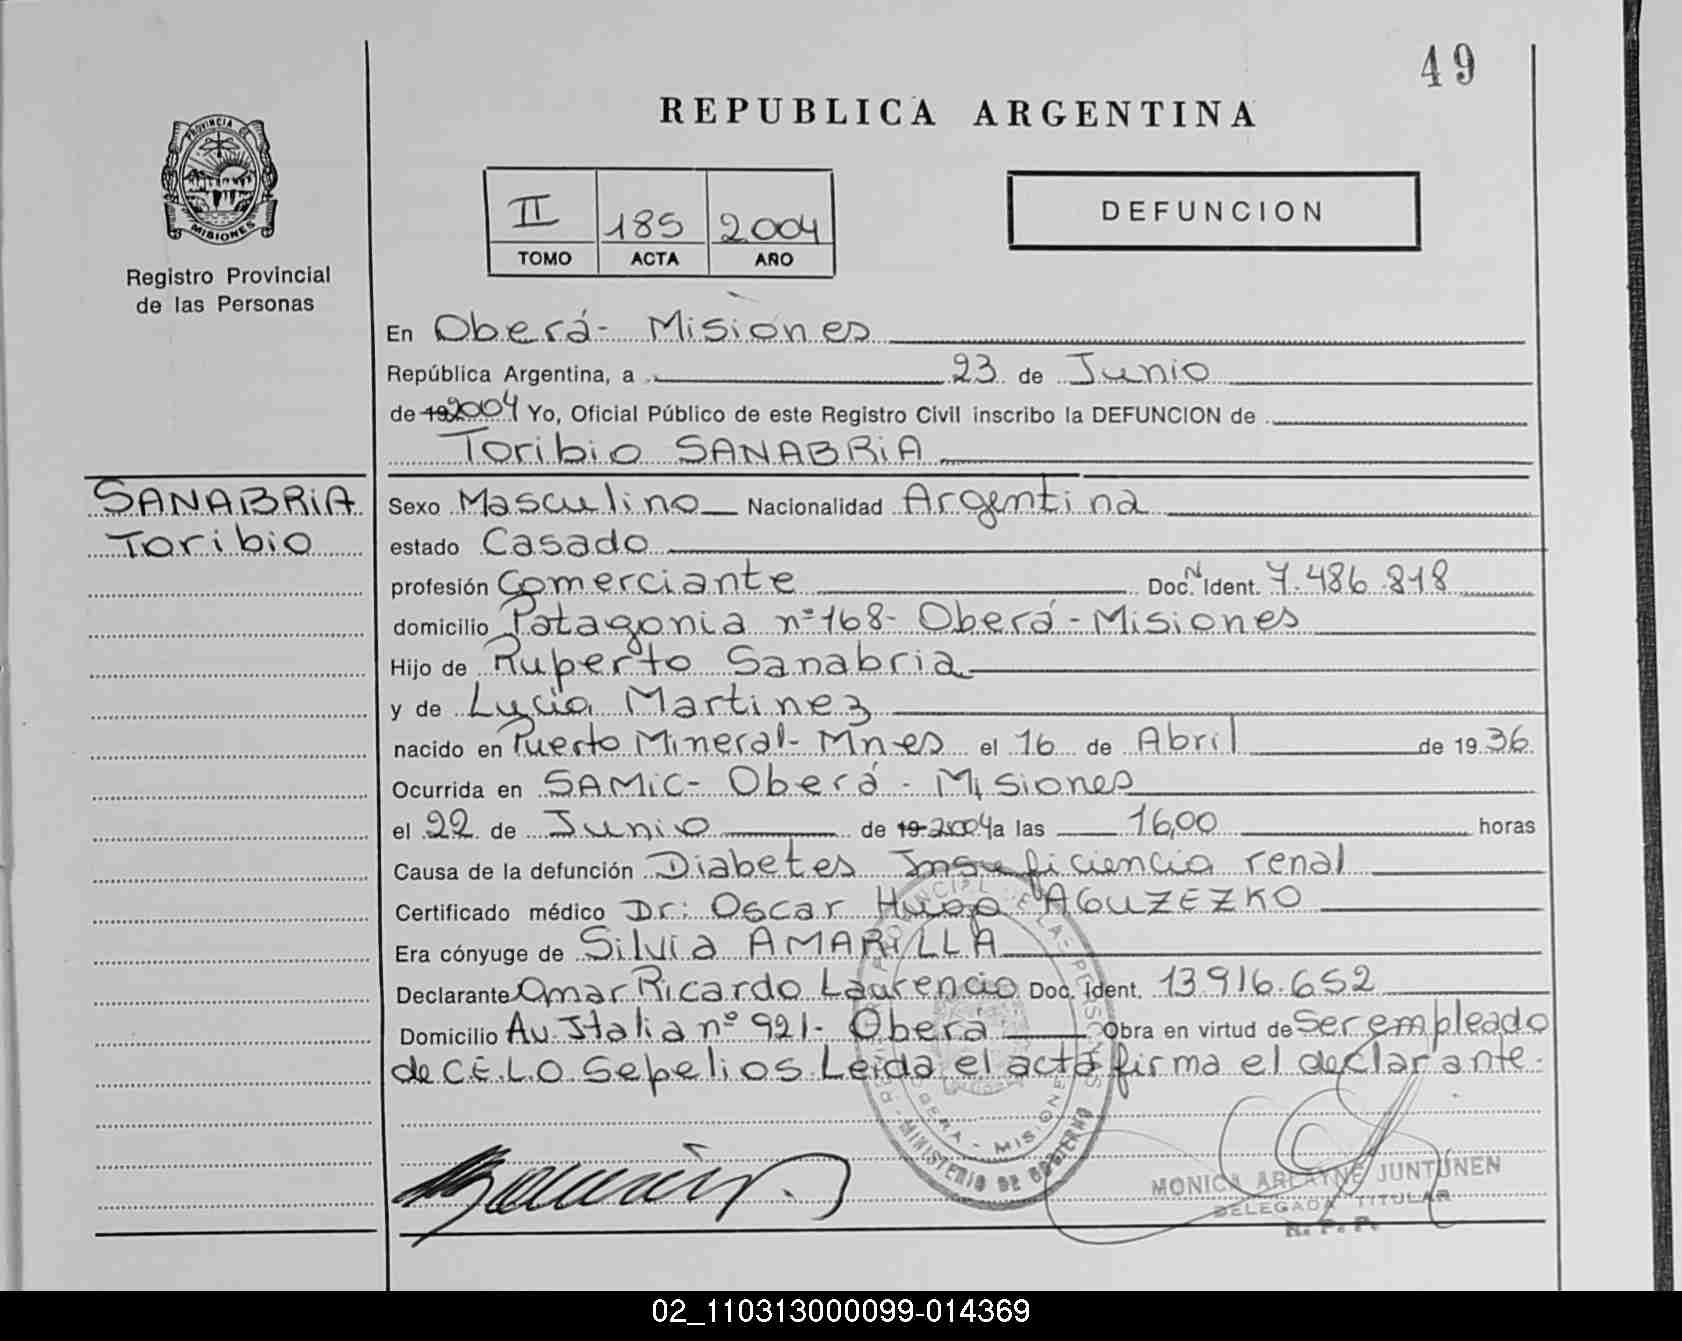 49
REPUBLICA ARGENTINA
PROVINCIA DE
MISIONES
Registro Provincial
de las Personas
II 185 2004
TOMO ACTA AÑO
DEFUNCION
En Oberá- Misiones
República Argentina, a 23 de Junio
de 19 2004 Yo, Oficial Público de este Registro Civil inscribo la DEFUNCION de
Toribio SANABRIA
SANABRIA
Toribio
Sexo Masculino Nacionalidad Argentina
estado Casado
profesión Comerciante Doc. N Ident. 7.486.818
domicilio Patagonia nº 168- Oberá - Misiones
Hijo de Ruperto Sanabria
y de Lucia Martinez
nacido en Puerto Mineral- Mnes el 16 de Abril de 19 36
Ocurrida en SAMIC- Oberá - Misiones
el 22 de Junio de 19 2004 a las 16,00 horas
Causa de la defunción Diabetes Insuficiencia renal
Certificado médico Dr: Oscar Hugo AGUZEZKO
Era cónyuge de Silvia AMARILLA
Declarante Omar Ricardo Laurencio Doc. Ident. 13916.652
Domicilio Av Italia nº 921- Obera Obra en virtud de Ser empleado
de C.E.L.O Sepelios. Leida el acta firma el declarante.
OBERA - MISIONES
MINISTERIO DE GOBIERNO
MONICA ARLAYNE JUNTUNEN
DELEGADA TITULAR
R. P. P.
02_110313000099-014369